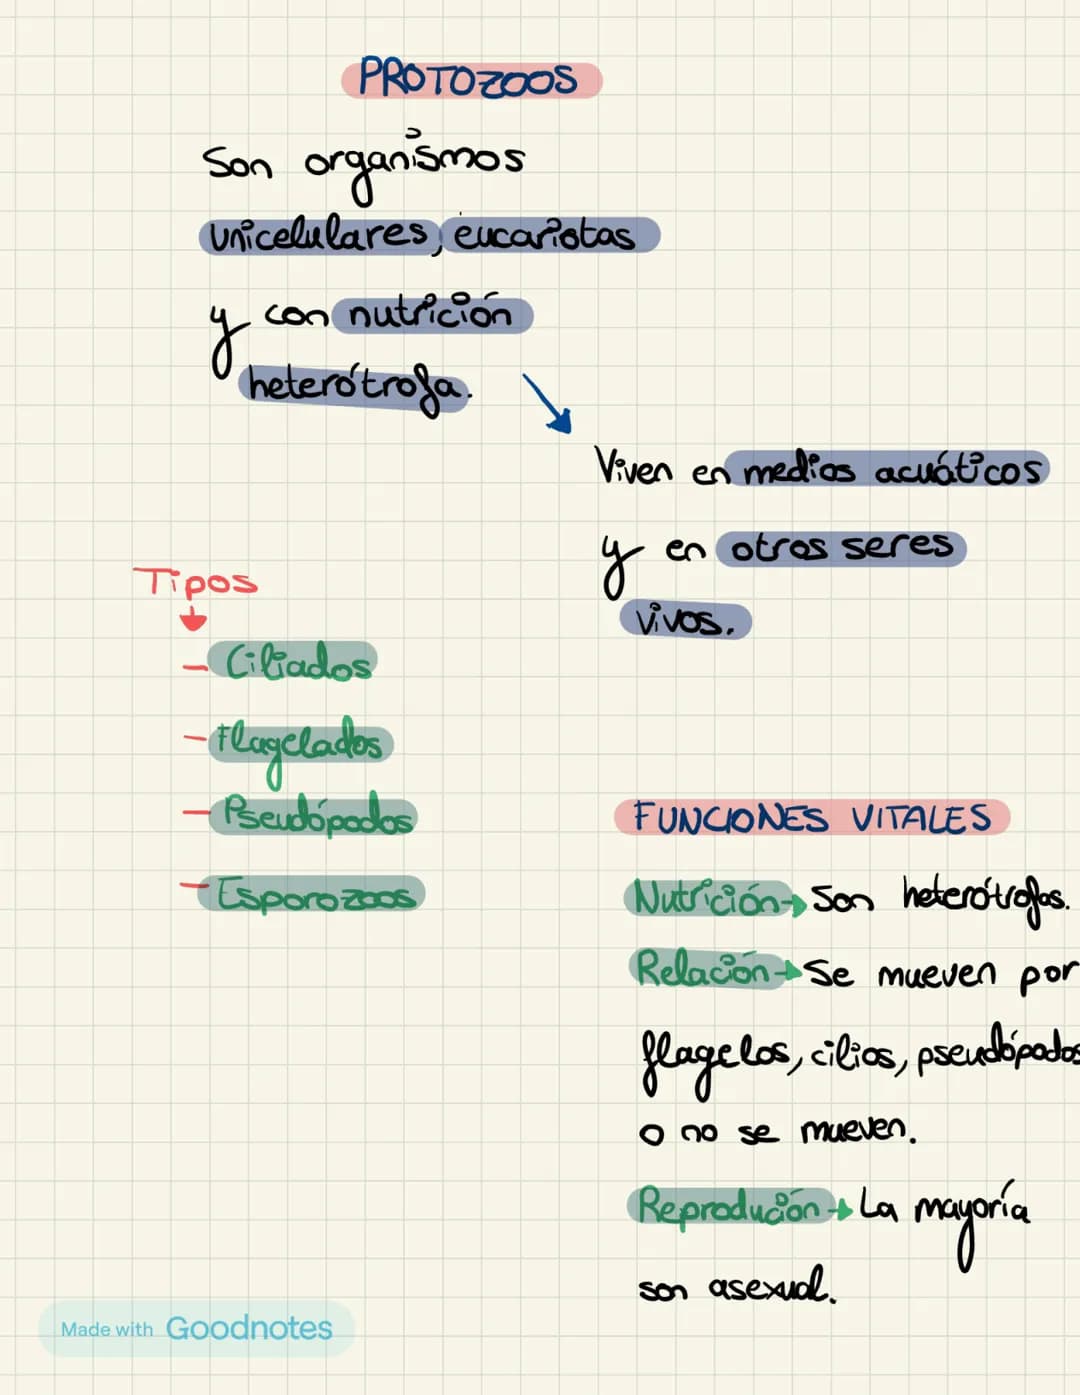 PROTOZOOS
Son organismos
unicelulares, eucariotas
y con nutrición
heterótrofa.
Viven en medios acuáticos
y en otros seres
vivos.
Tipos
- Ciliados
- Flagelados
- Pseudópodos
- Esporozoos
FUNCIONES VITALES
Nutrición→ Son heterótrofos.
Relación→ Se mueven por
flagelos, cilios, pseudópodos
o no se mueven.
Reprodución→ La mayoría
son asexual.
Made with Goodnotes